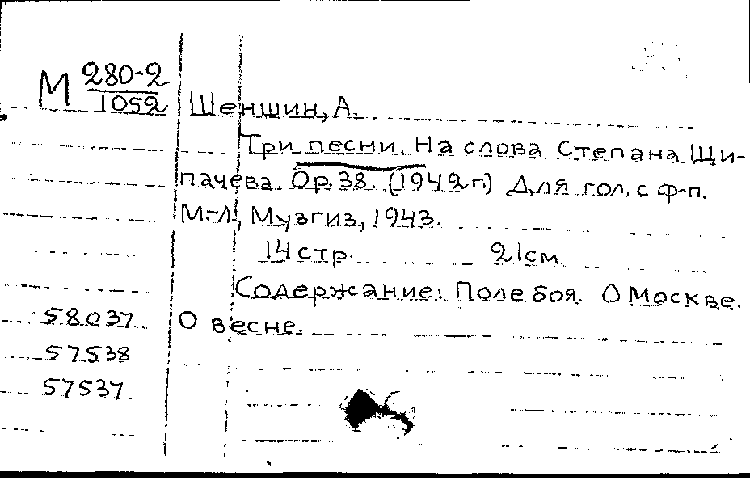 М 280-2
1052
Шеншин, А.
Три песни. На слова Степана Щи-
пачева. Op. 38. (1942 г.) Для гол. с ф-п.
М.-Л., Музгиз, 1943.
14 стр. 21 см
Содержание: Поле боя. О Москве.
58037 О весне.
57538
57537